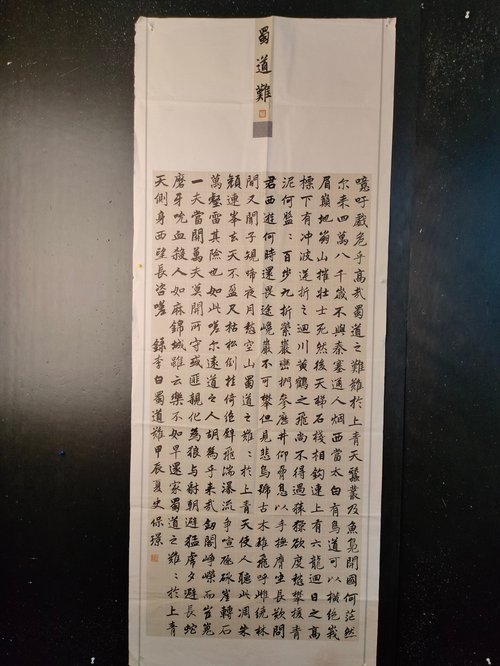 蜀道難
噫吁戲危乎高哉蜀道之難難於上青天蠶叢及魚鳧開國何茫然
尔來四萬八千歲不與秦塞通人烟西當太白有鳥道可以橫絕峨
眉巔地崩山摧壯士死然後天梯石棧相鈎連上有六龍迴日之高
標下有冲波逆折之迴川黃鶴之飛尚不得過猿猱欲度愁攀援青
泥何盤：百步九折縈巖巒捫參歷井仰脅息以手撫膺坐長歎問
君西遊何時還畏途巉巖不可攀但見悲鳥號古木雄飛呼雌繞林
間又聞子規啼夜月愁空山蜀道之難：於上青天使人聽此凋朱
顏連峯去天不盈尺枯松倒挂倚絕壁飛湍瀑流爭喧豗砯崖轉石
萬壑雷其險也如此嗟尔遠道之人胡為乎來哉劍閣崢嶸而崔嵬
一夫當關萬夫莫開所守或匪親化為狼與豺朝避猛虎夕避長蛇
磨牙吮血殺人如麻錦城雖云樂不如早還家蜀道之難：於上青
天側身西望長咨嗟 錄李白蜀道難甲辰夏史保璟